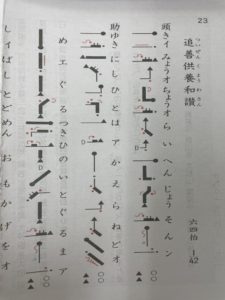 23
追善供養和讃
ついぜんくようわさん
六四拍 I-42
頭 きイみょうオちょうオらいへんじょうそんン
助 ゆきにしひとはアかえらねどオ
めエぐるつきひのいとぐるまア
しイばしとどめんおもかげをオ